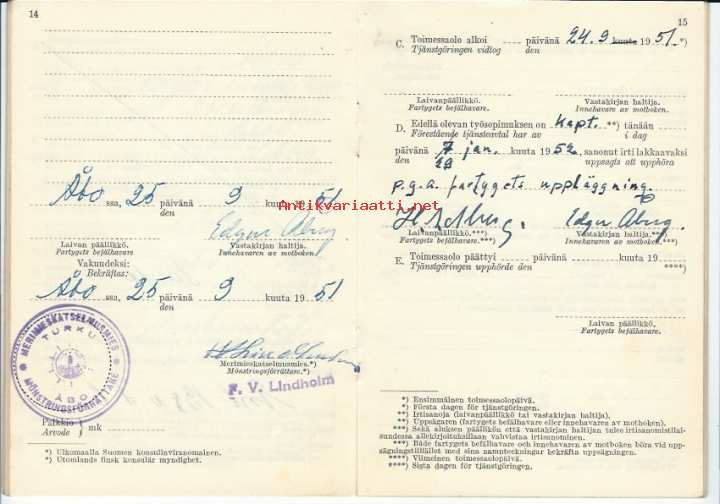 14
Åbo ssa, 25 päivänä 9 kuuta 1951
den
Edgar Åberg
Laivan päällikkö.
Fartygets befälhavare
Vastakirjan haltija.
Innehavaren av motboken.
Vakuudeksi:
Bekräftas:
Åbo ssa, 25 päivänä 9 kuuta 1951
den
MERIMIESKATSELMUSMIES
TURKU
ÅBO
MÖNSTRINGSFÖRRÄTTARE
Merimieskatselmusmies.*)
Mönstringsförrättare.*)
F. V. Lindholm
Palkkio
Arvode
mk
*) Ulkomailla Suomen konsuliviranomainen.
*) Utomlands finsk konsulär myndighet.
15
C. Toimessaolo alkoi päivänä 24.9 kuuta 1951.*)
Tjänstgöringen vidtog den
Laivanpäällikkö.
Fartygets befälhavare.
Vastakirjan haltija.
Innehavaren av motboken.
D. Edellä olevan työsopimuksen on kapt. **) tänään
Förestående tjänsteavtal har av i dag
päivänä 7 jan. kuuta 1952, sanonut irti lakkaavaksi
den uppsagts att upphöra
p.g.a. fartygets uppläggning.
Edgar Åberg.
Laivanpäällikkö.***)
Fartygets befälhavare.***)
Vastakirjan haltija.***)
Innehavaren av motboken.***)
E. Toimessaolo päättyi päivänä kuuta 19
Tjänstgöringen upphörde den ****)
Laivan päällikkö.
Fartygets befälhavare.
*) Ensimmäinen toimessaolopäivä.
*) Första dagen för tjänstgöringen.
**) Irtisanoja (laivanpäällikkö tai vastakirjan haltija).
**) Uppsägaren (fartygets befälhavare eller innehavaren av motboken).
***) Sekä aluksen päällikön että vastakirjan haltijan tulee irtisanomistilaisuudessa allekirjoituksillaan vahvistaa irtisanominen.
***) Både fartygets befälhavare och innehavaren av motboken böra vid uppsägningstillfället med sina namnteckningar bekräfta uppsägningen.
****) Viimeinen toimessaolopäivä.
****) Sista dagen för tjänstgöringen.
Antikvariaatti.net